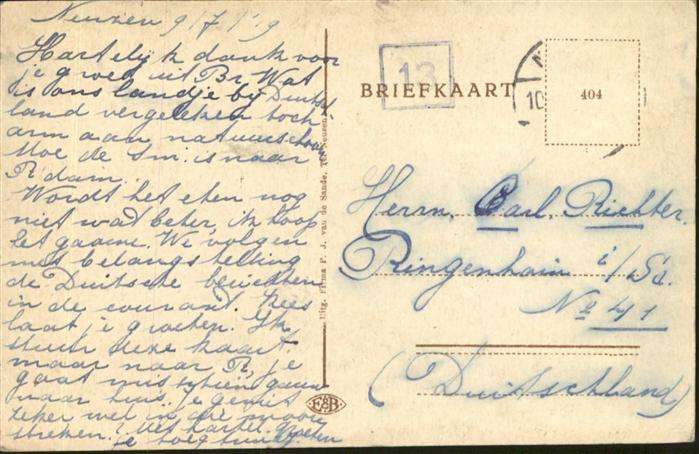 Neuzen 9/7 '19
Hartelijk dank voor
je groet uit Br. Wat
is ons landje bij Duitsch
land vergeleken toch
arm aan natuurschoon
Moe de Sm. is naar
R'dam.
Wordt het eten nog
niet wat beter, ik hoop
het gaarne. We volgen
met belangstelling
de Duitsche berichten
in de courant. Kees
laat je groeten. Ik
stuur deze kaart
maar naar R, je
gaat misschien gauw
naar huis. Je geniet
zeker wel in die mooie
streken? Met hartel. groeten
je toegen.
Uitg. Firma P. J. van de Sande, Ter Neuzen
E&B
13
BRIEFKAART
10
404
Herrn. Carl. Richter.
Ringenhain i/Sa.
No 41
(Duitschland)